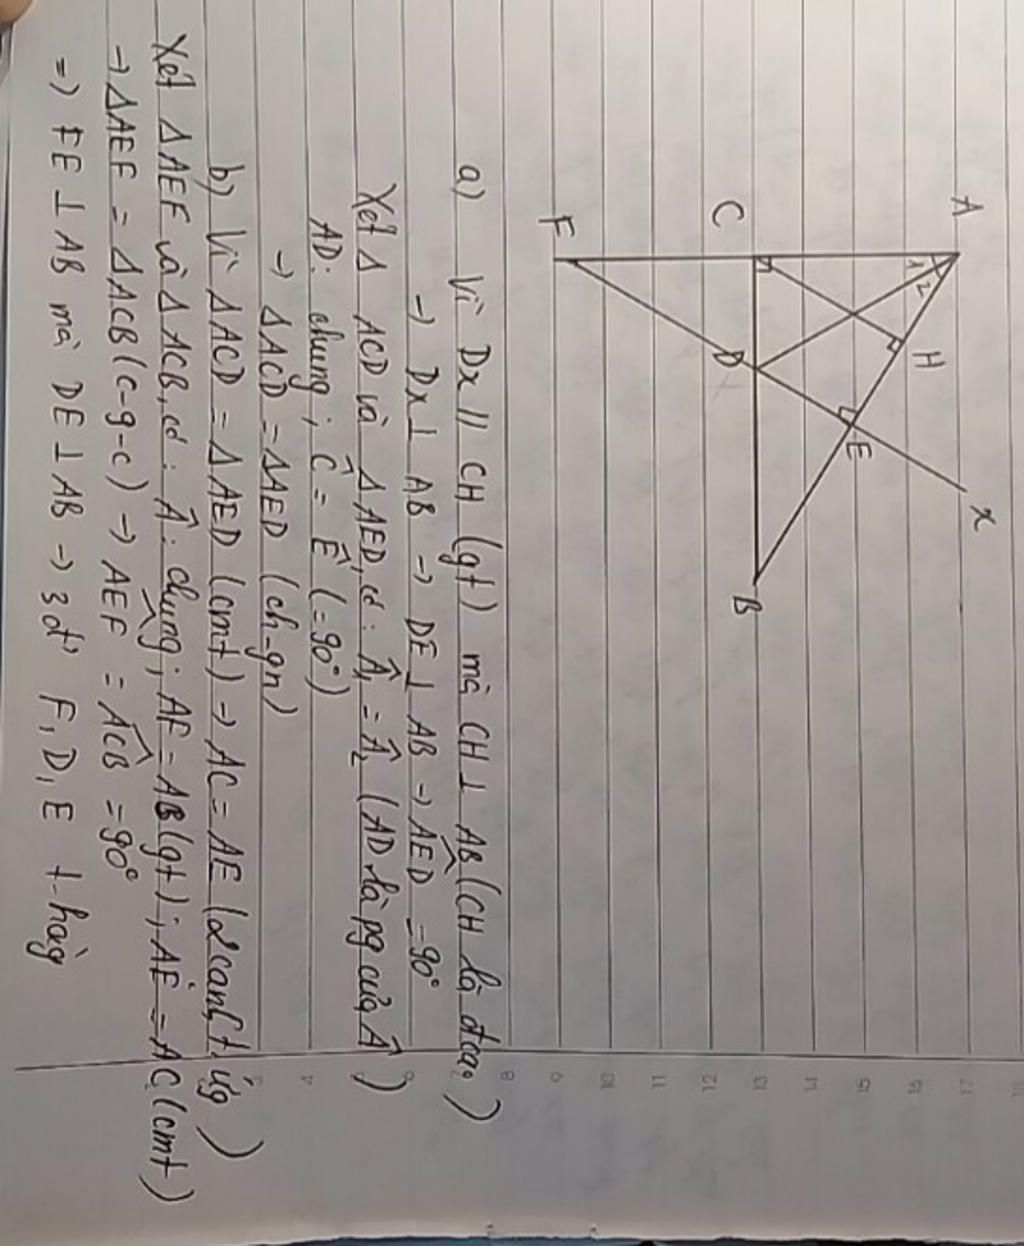 A
C
F
1
2
H
D
E
x
B
a) Vì Dx // CH (gt) mà CH ⊥ AB (CH là đcao)
→ Dx ⊥ AB → DE ⊥ AB → AED^ = 90°
Xét Δ ACD và Δ AED, có: Â1 = Â2 (AD là pg của Â)
AD: chung; Ĉ = Ê (= 90°)
→ ΔACD = ΔAED (ch-gn)
b) Vì ΔACD = ΔAED (cmt) → AC = AE (2 cạnh t. ứg)
Xét ΔAEF và ΔACB, có: Â: chung; AF = AB (gt); AE = AC (cmt)
→ ΔAEF = ΔACB (c-g-c) → AEF^ = ACB^ = 90°
=> FE ⊥ AB mà DE ⊥ AB → 3 đ' F, D, E t-hàg
3
4
5
6
8
9
10
11
12
13
14
15
16
17
18